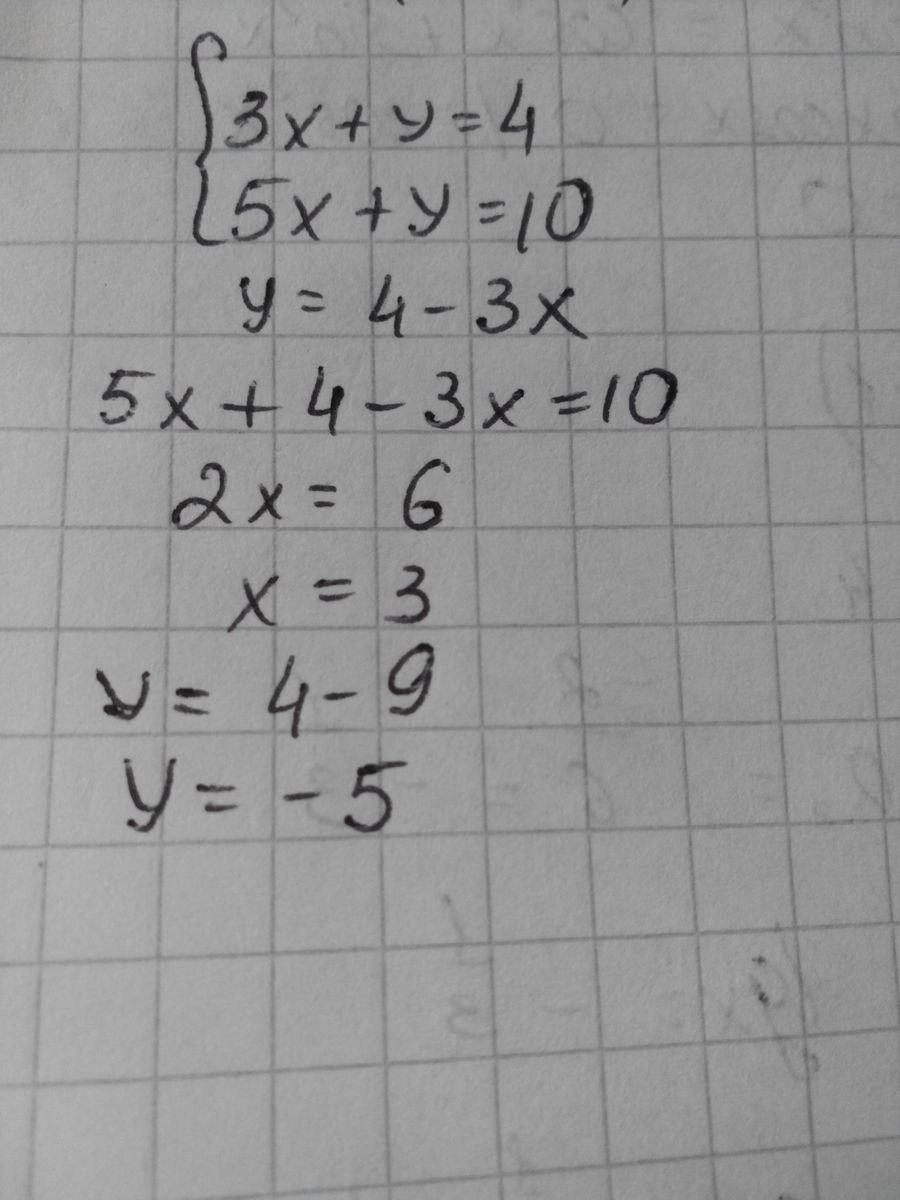 3x + y = 4
5x + y = 10
y = 4 - 3x
5x + 4 - 3x = 10
2x = 6
x = 3
y = 4 - 9
y = -5